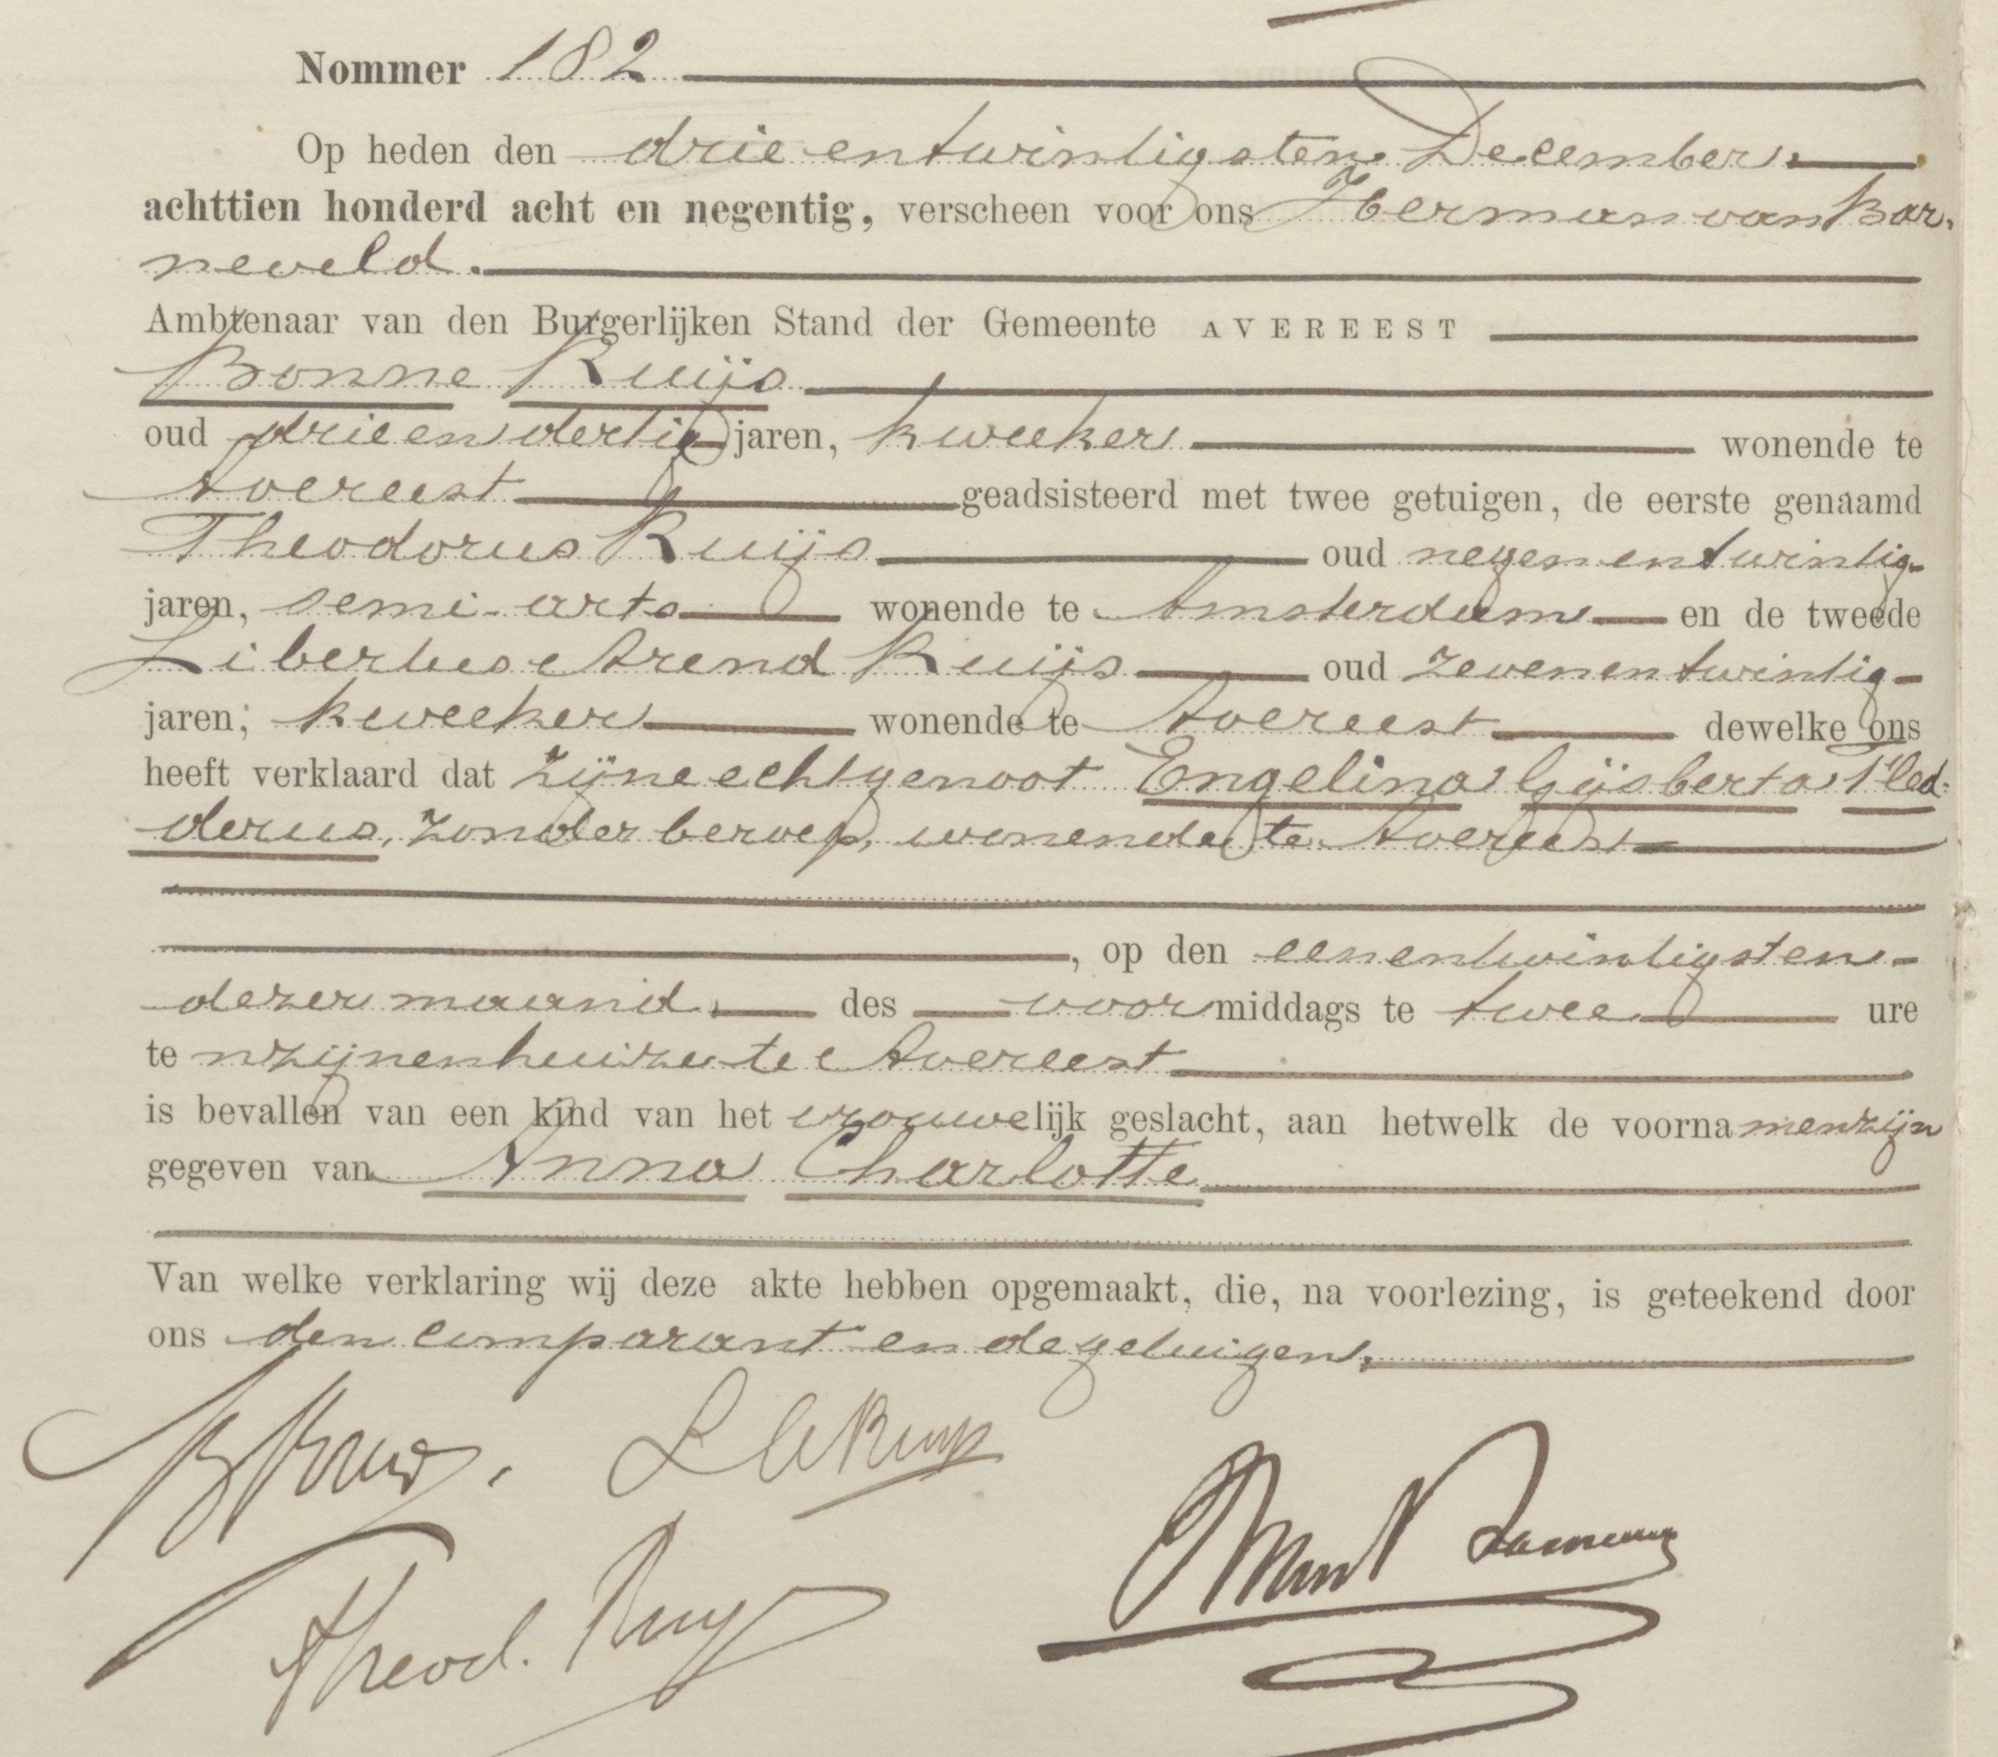 Nommer 182
Op heden den drie en twintigsten December
achttien honderd acht en negentig, verscheen voor ons Herman van Bar-
neveld.
Ambtenaar van den Burgerlijken Stand der Gemeente AVEREEST
Bonne Ruijs
oud drie en dertig jaren, kweeker wonende te
Avereest geadsisteerd met twee getuigen, de eerste genaamd
Theodorus Ruijs oud negen en twintig
jaren, semi-arts wonende te Amsterdam en de tweede
Libertus Arend Ruijs oud zeven en twintig
jaren, kweeker wonende te Avereest dewelke ons
heeft verklaard dat zijne echtgenoot Engelina Gijsberta Fled-
derus, zonder beroep, wonende te Avereest
, op den eenentwintigsten
dezer maand des voormiddags te twee ure
te nzijnenhuize te Avereest
is bevallen van een kind van het vrouwelijk geslacht, aan hetwelk de voornamen zijn
gegeven van Anna Charlotte
Van welke verklaring wij deze akte hebben opgemaakt, die, na voorlezing, is geteekend door
ons den comparant en de getuigen.
B Ruys. L A Ruys
Theod. Ruys